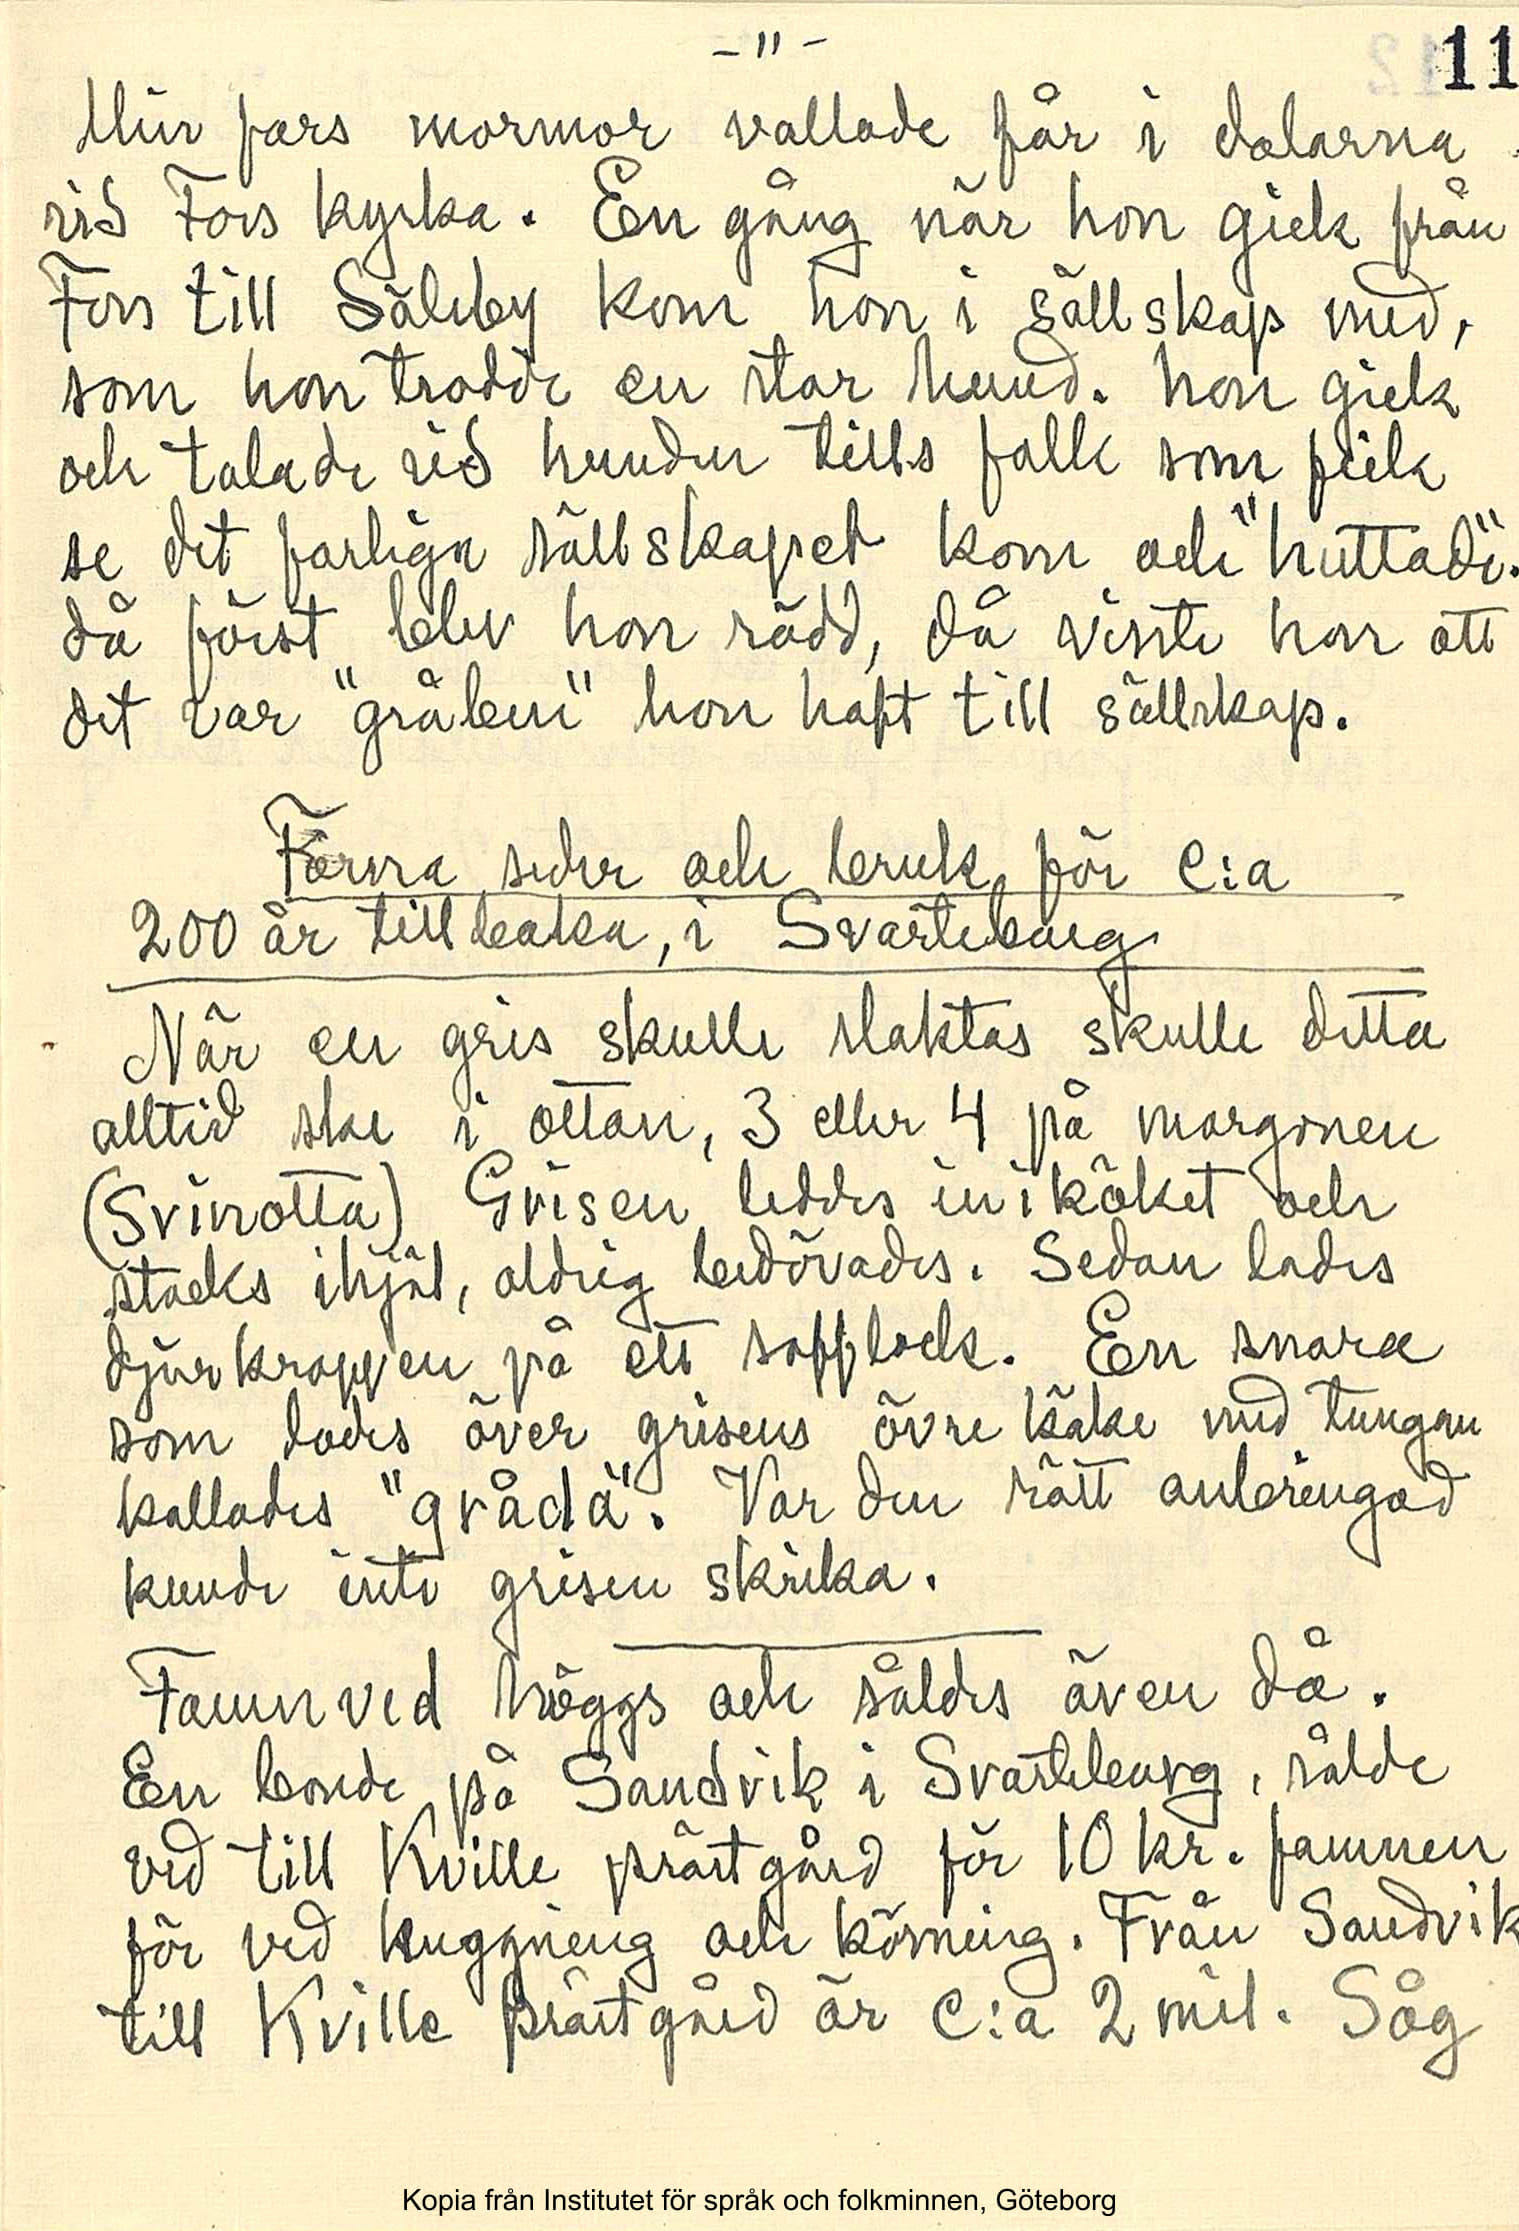 - 11 -
11
Min fars mormor vallade får i dalarna
vid Fors kyrka. En gång när hon gick från
Fors till Säleby kom hon i sällskap med,
som hon trodde en stor hund. hon gick
och talade vid hunden tills folk som fick
se det farliga sällskapet kom och "huttade".
då först blev hon rädd, då visste hon att
det var "gråben" hon haft till sällskap.
Forna seder och bruk för c:a
200 år tillbaka, i Svarteborg
När en gris skulle slaktas skulle detta
alltid ske i ottan, 3 eller 4 på morgonen
(Svinotta) Grisen leddes in i köket och
stacks ihjäl, aldrig bedövades. Sedan lades
djurkroppen på ett sofflock. En snara
som lades över grisens övre käke med tungan
kallades "gvåda". Var den rätt anbringad
kunde inte grisen skrika.
Famnved höggs och såldes även då.
En bonde på Sandvik i Svarteborg, sålde
ved till Kville prästgård för 10 kr. famnen
för ved huggning och körning. Från Sandvik
till Kville prästgård är c:a 2 mil. Såg
Kopia från Institutet för språk och folkminnen, Göteborg